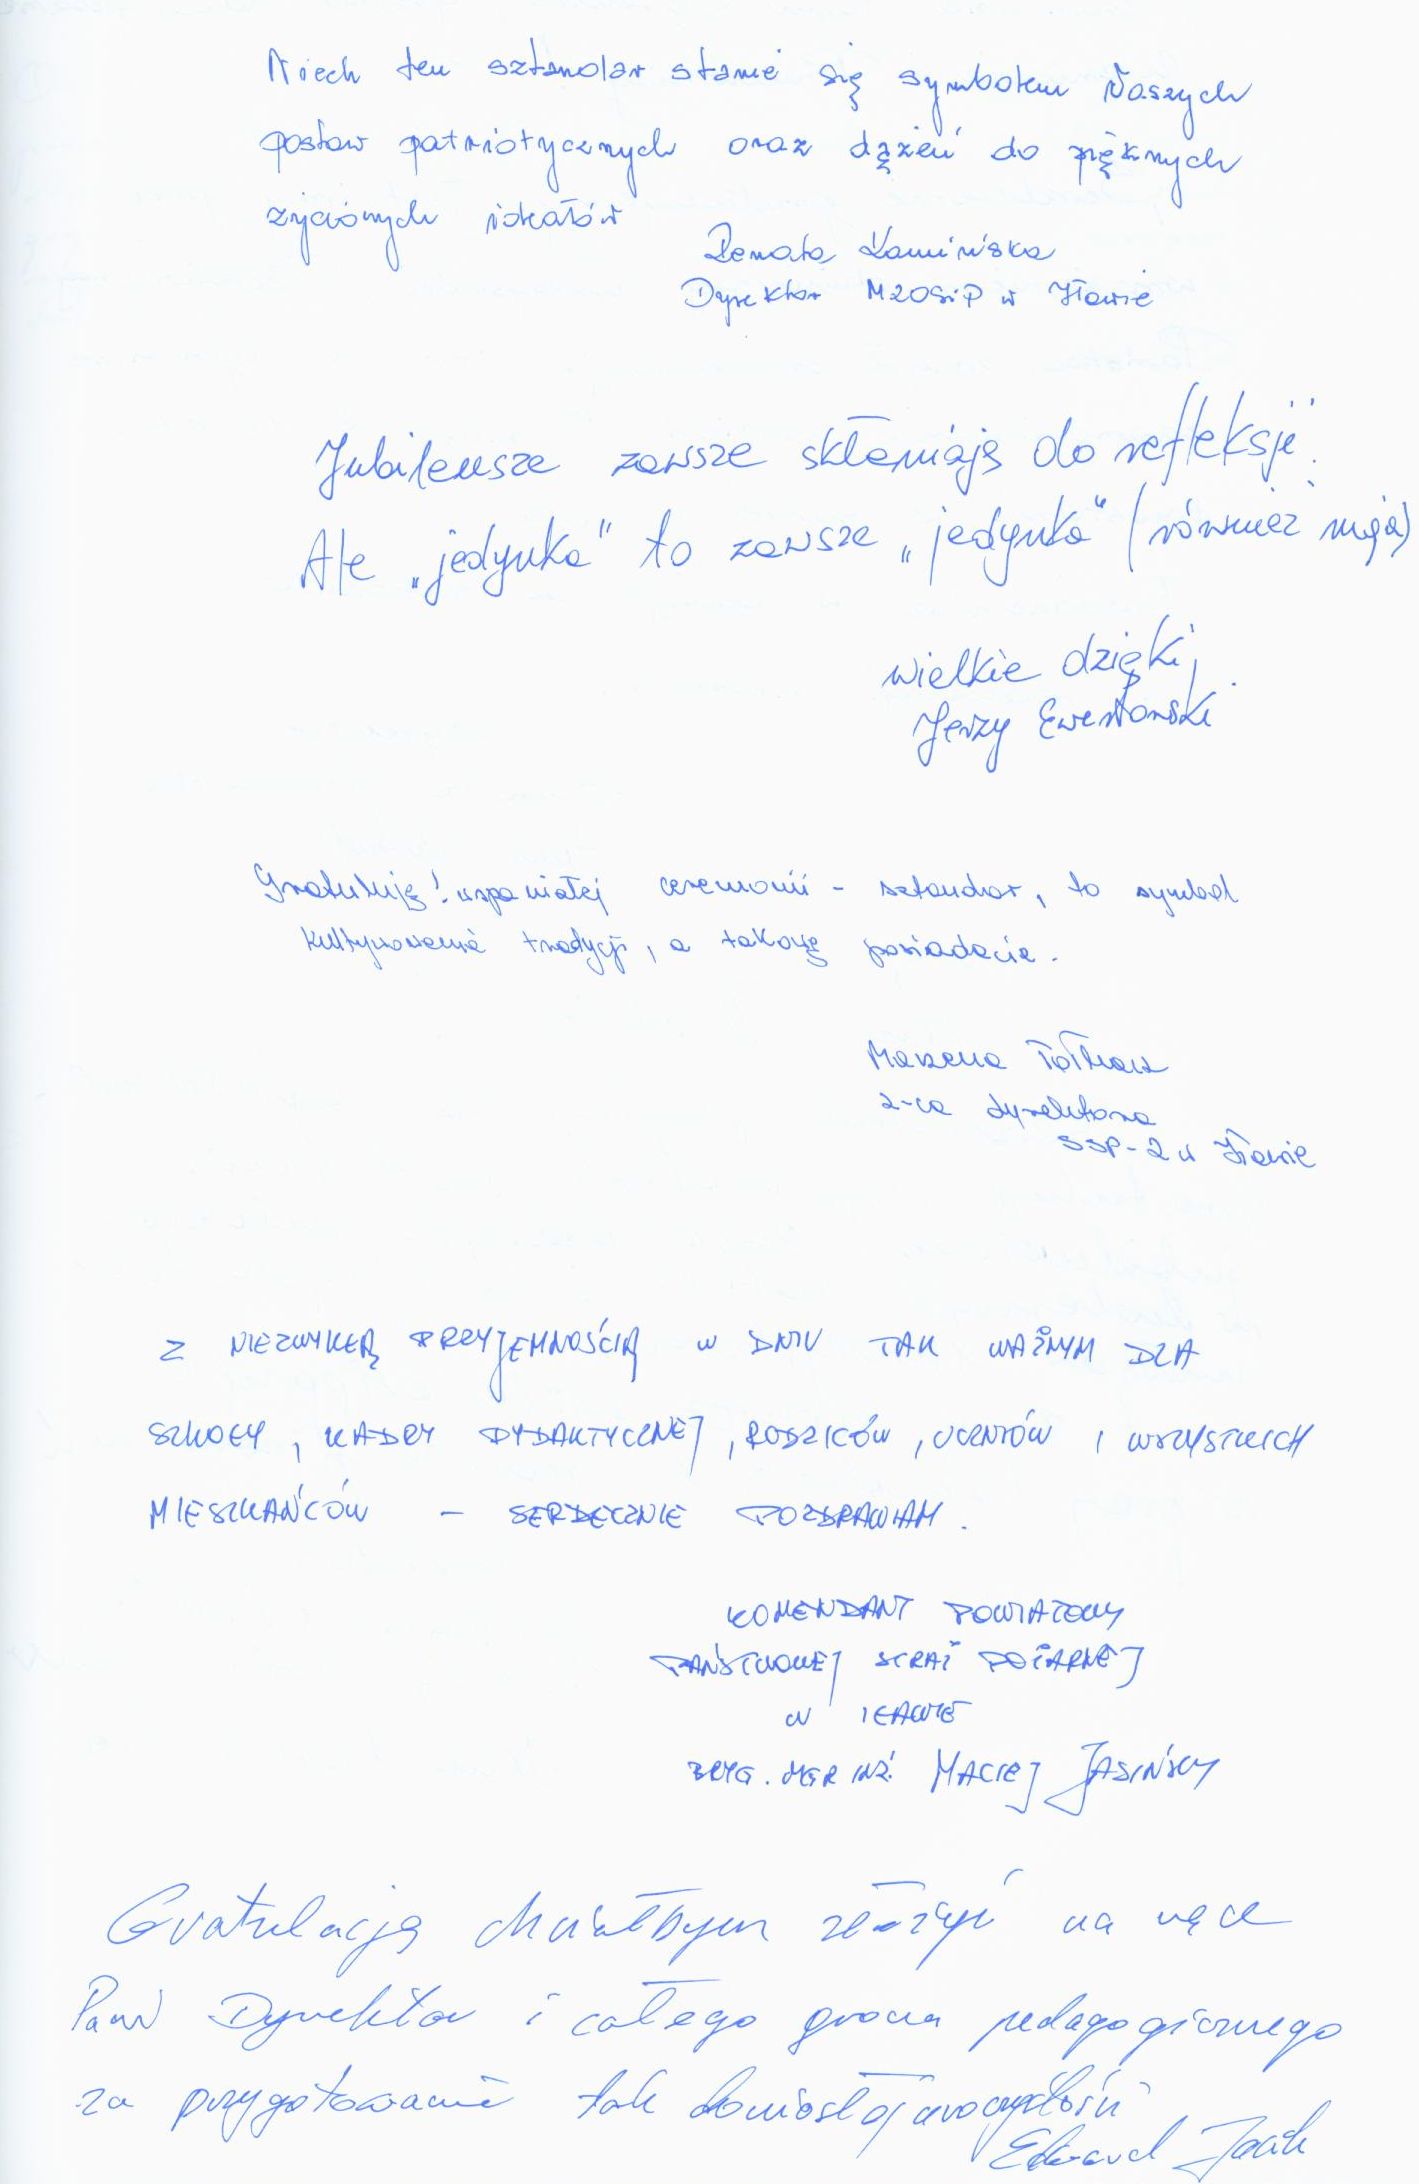 Niech ten sztandar stanie się symbolem Waszych
postaw patriotycznych oraz dążeń do pięknych
życiowych ideałów
Renata Kamińska
Dyrektor MZOSiP w Iławie
Jubileusze zawsze skłaniają do refleksji.
Ale „jedynka" to zawsze „jedynka" (również moja)
wielkie dzięki,
Jerzy Ewertowski
Gratuluję! wspaniałej ceremonii - sztandar, to symbol
kultywowania tradycji, a takową posiadacie.
Marzena
z-ca dyrektora
SSP-2 w Iławie
Z NIEZWYKŁĄ PRZYJEMNOŚCIĄ W DNIU TAK WAŻNYM DLA
SZKOŁY, KADRY DYDAKTYCZNEJ, RODZICÓW, UCZNIÓW I WSZYSTKICH
MIESZKAŃCÓW – SERDECZNIE POZDRAWIAM.
KOMENDANT POWIATOWY
PAŃSTWOWEJ STRAŻ POŻARNEJ
W IŁAWIE
BRYG. MGR INŻ. MACIEJ JASIŃSKI
Gratulacją chciałbym złożyć na ręce
Pani Dyrektor i całego grona pedagogicznego
za przygotowanie tak doniosłej uroczystości
Edward